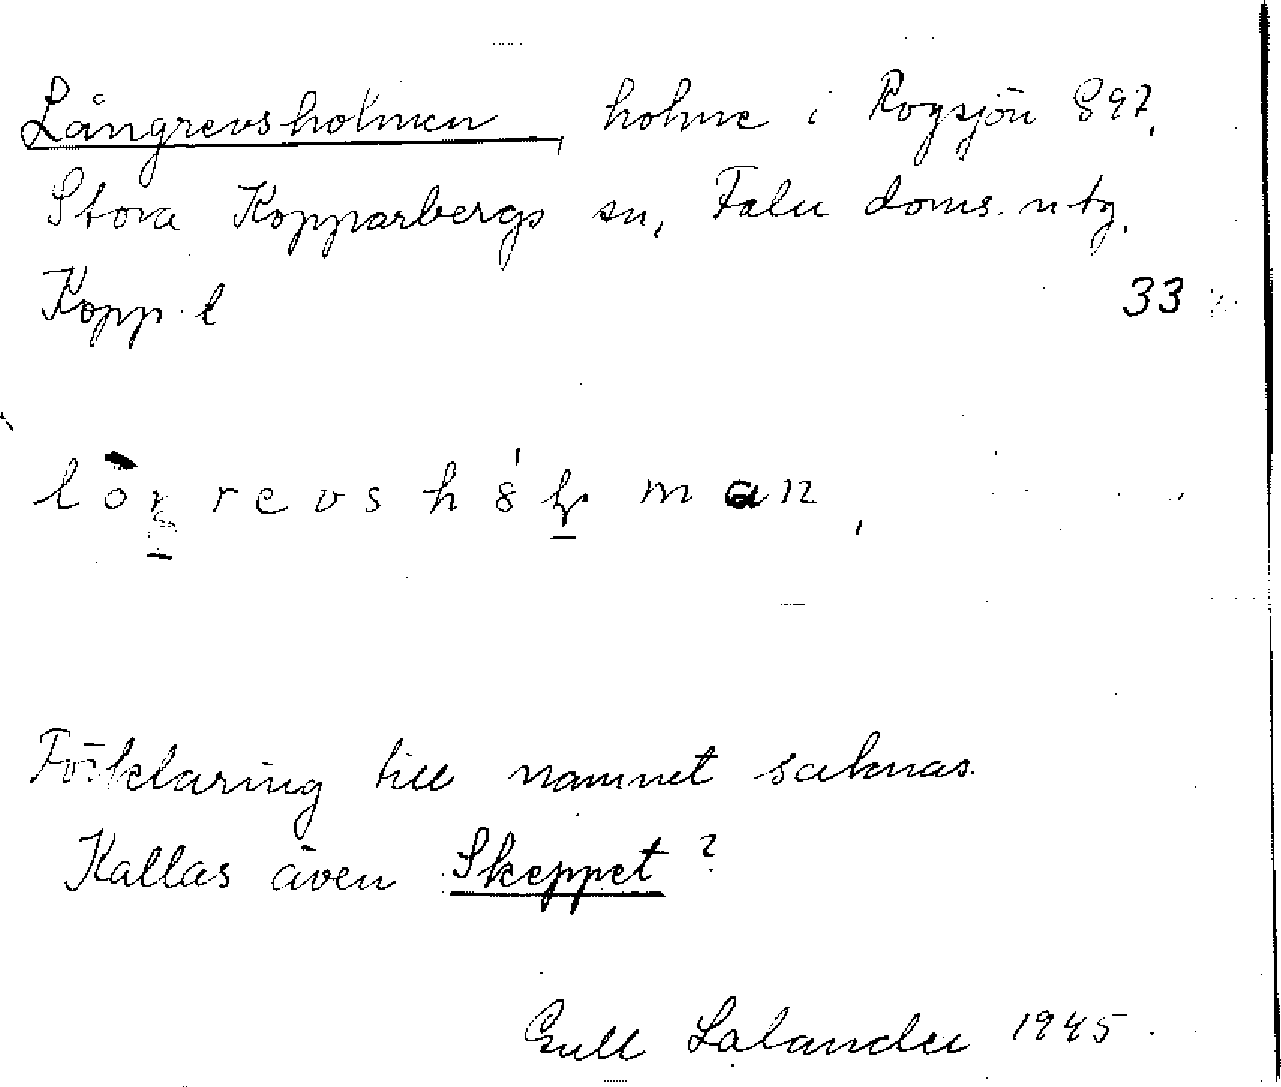 Långrevsholmen, holme i Rogsjön 897.
Stora Kopparbergs sn, Falu doms. ntg.
Kopp. l 33
Förklaring till namnet saknas.
Kallas även Skeppet?
Gull Lalander 1945.